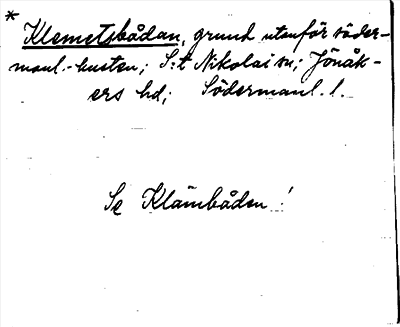 *
Klemetsbådan, grund utanför söder-
manl.-kusten; S:t Nikolai sn; Jönåk-
ers hd; Södermanl. l.
Se Klämbåden!